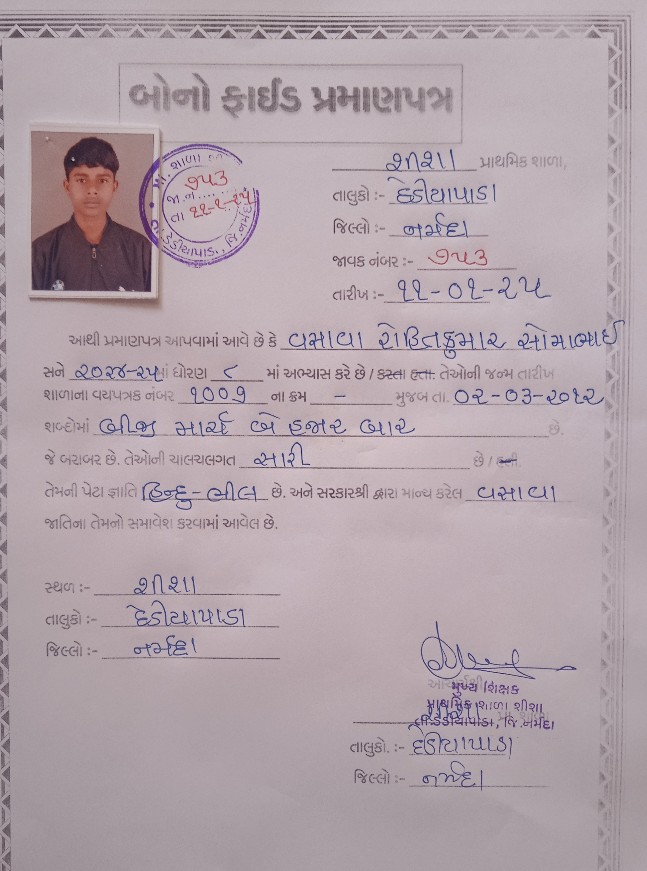 બોનો ફાઈડ પ્રમાણપત્ર
પ્રા. શાળા
૭૫૩
જા.નં.......
તા ૧૧-૧-૨૫
ડેડીયાપાડા, જિ.નર્મદા
શીશા પ્રાથમિક શાળા,
તાલુકો :- દેડીયાપાડા
જિલ્લો :- નર્મદા
જાવક નંબર :- ૭૫૩
તારીખ :- ૧૧-૦૧-૨૫
આથી પ્રમાણપત્ર આપવામાં આવે છે કે વસાવા રોહિતકુમાર સોમાભાઈ
સને ૨૦૨૪-૨૫માં ધોરણ ૮ માં અભ્યાસ કરે છે / કરતા હતા. તેઓની જન્મ તારીખ
શાળાના વયપત્રક નંબર ૧૦૦૧ ના ક્રમ - મુજબ તા. ૦૨-૦૩-૨૦૧૨
શબ્દોમાં બીજી માર્ચ બે હજાર બાર છે.
જે બરાબર છે. તેઓની ચાલચલગત સારી છે / હતી
તેમની પેટા જ્ઞાતિ હિન્દુ-ભીલ છે. અને સરકારશ્રી દ્વારા માન્ય કરેલ વસાવા
જાતિના તેમનો સમાવેશ કરવામાં આવેલ છે.
સ્થળ :- શીશા
તાલુકો :- દેડીયાપાડા
જિલ્લો :- નર્મદા
મુખ્ય શિક્ષક
પ્રાથમિક શાળા શીશા
તા.ડેડીયાપાડા, જિ.નર્મદા
તાલુકો. :- દેડીયાપાડા
જિલ્લો :- નર્મદા